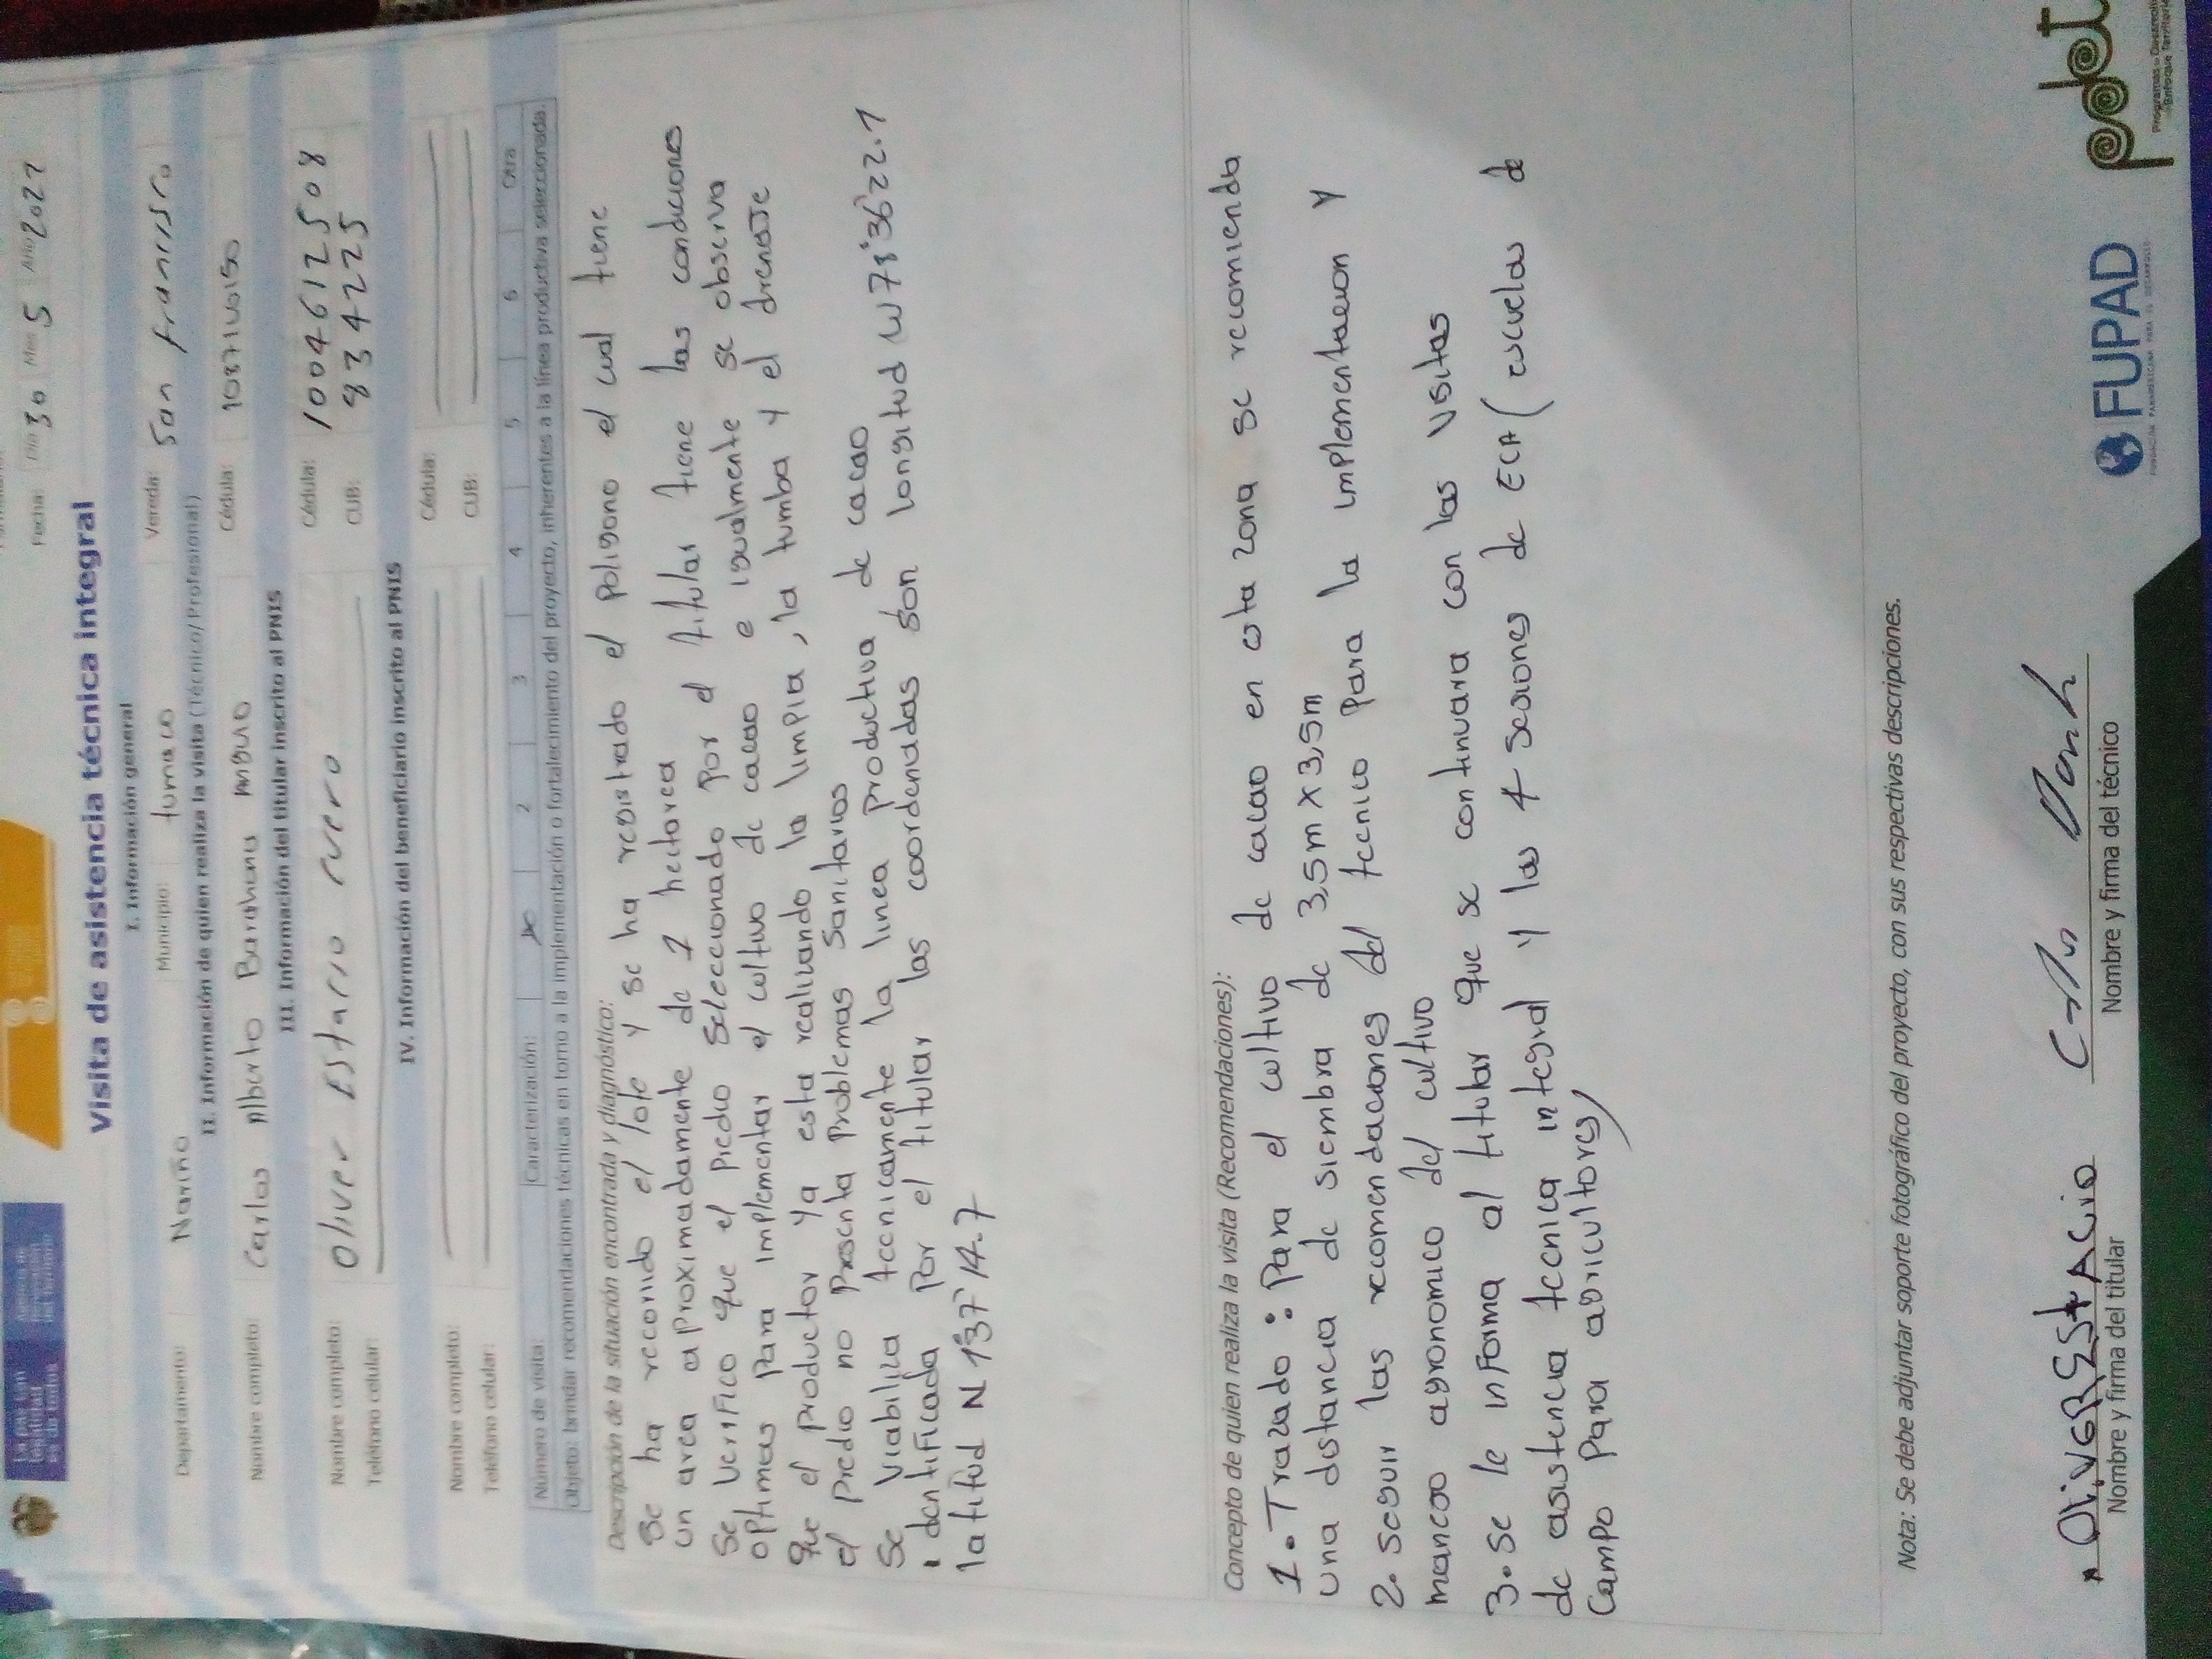 Fecha: Día 30 Mes 5 Año 2022
Visita de asistencia técnica integral
I. Información general
Departamento: Nariño Municipio: tumaco Vereda: San franrisro
II. Información de quien realiza la visita (Técnico/Profesional)
Nombre completo: Carlos Alberto Barahona Angulo Cédula:
III. Información del titular inscrito al PNIS
Nombre completo: Oliver Estacio rvero Cédula: 1004612508
Teléfono celular: CUB: 834225
IV. Información del beneficiario inscrito al PNIS
Nombre completo: Cédula:
Teléfono celular: CUB:
Número de visita: Caracterización: 1 X 2 3 4 5 6 Otra
Objeto: brindar recomendaciones técnicas en torno a la implementación o fortalecimiento del proyecto, inherentes a la línea productiva seleccionada.
Descripción de la situación encontrada y diagnóstico:
Se ha recorrido el lote y se ha registrado el poligono el cual tiene
un area aproximadamente de 1 hectarea
Se verifico que el predio seleccionado por el titular tiene las condiciones
optimas para implementar el cultivo de cacao e igualmente se observa
que el productor ya esta realizando la limpia, la tumba y el drenaje
el predio no presenta problemas sanitarios
Se viabiliza tecnicamente la linea productiva de cacao
identificada por el titular las coordenadas son longitud W78°36'22.1
latitud N 1°37'14.7
Concepto de quien realiza la visita (Recomendaciones):
1. Trazado: Para el cultivo de cacao en esta zona se recomienda
una distancia de siembra de 3,5m x 3,5m
2. seguir las recomendaciones del tecnico para la implementacion y
manejo agronomico del cultivo
3. se le informa al titular que se continuara con las visitas
de asistencia tecnica integral y las 4 sesiones de ECA (escuelas de
Campo para agricultores)
Nota: Se debe adjuntar soporte fotográfico del proyecto, con sus respectivas descripciones.
OliVEREStACio
Nombre y firma del titular
Nombre y firma del técnico
FUPAD
FUNDACIÓN PANAMERICANA PARA EL DESARROLLO
pdet
Programas de Desarrollo
Enfoque Territorial